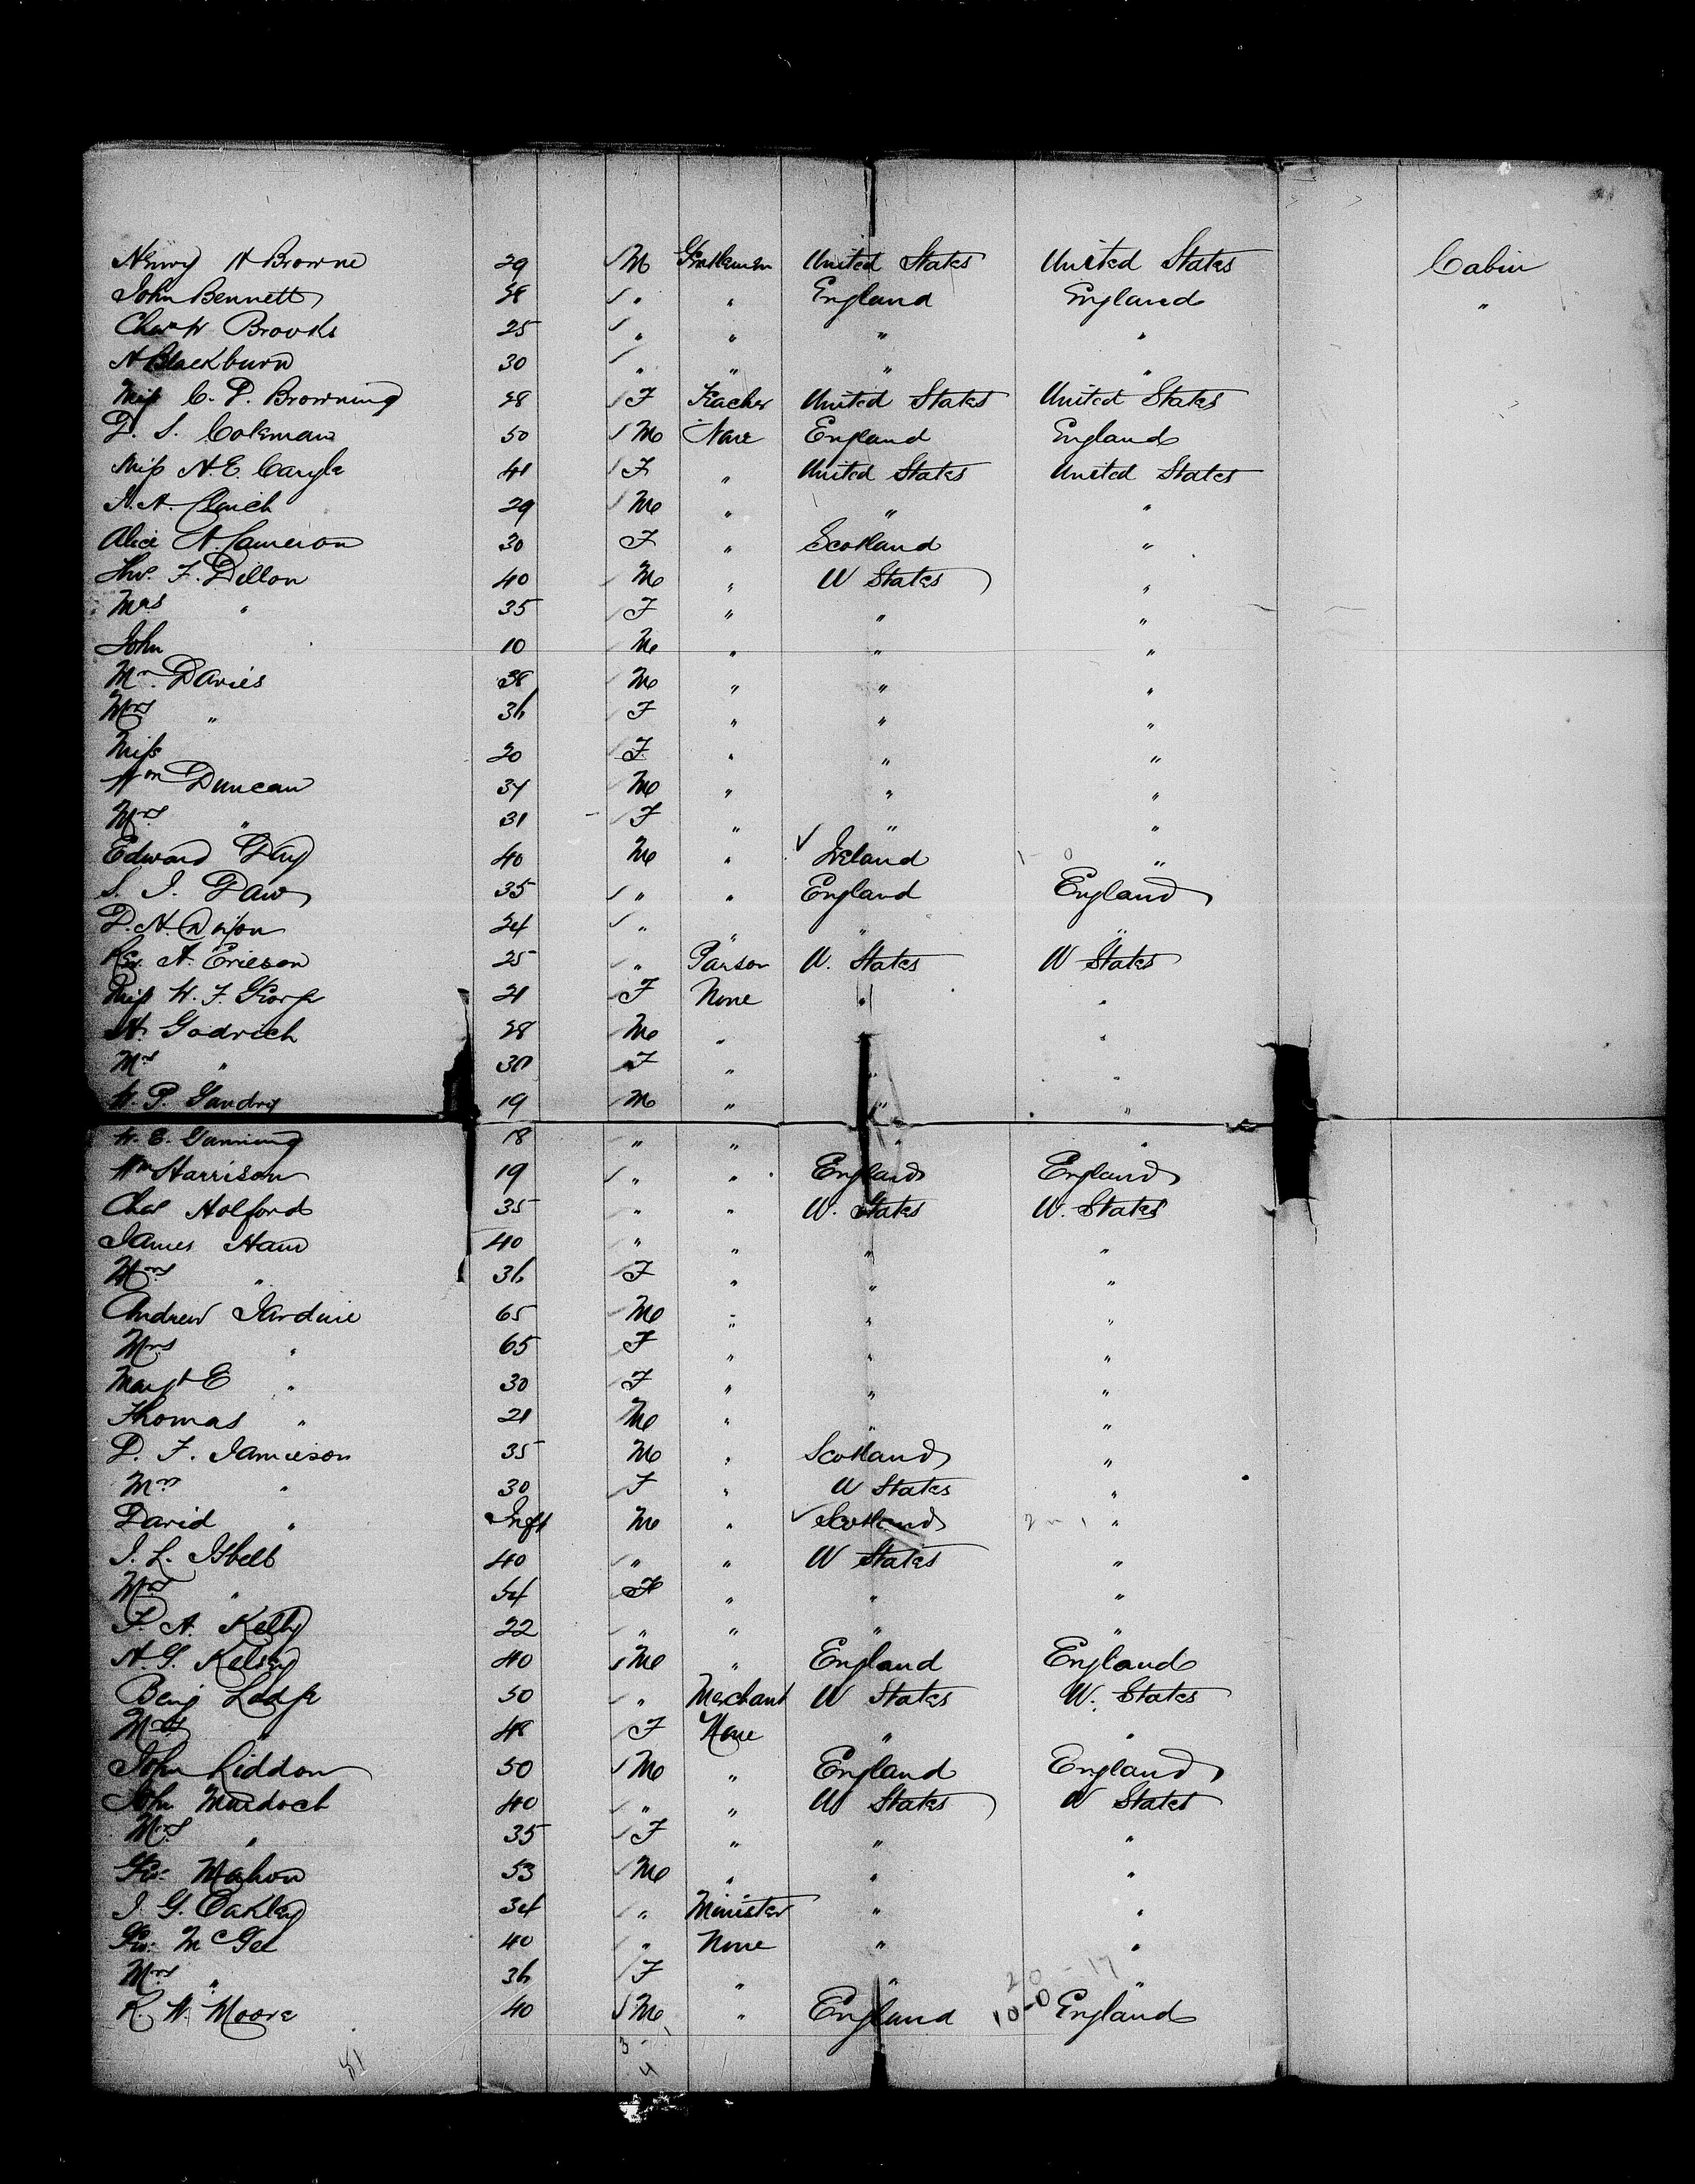 Henry H Browne 29 M Gentleman United States United States Cabin
John Bennett 28 " " England England "
Chas W Brooks 25 " " " "
H Blackburn 30 " " " "
Miss C. P. Browning 28 F Teacher United States United States
D. S. Coleman 50 M None England England
Miss N. E. Cargle 41 F " United States United States
A. A. Clinch 29 M " " "
Alice H. Cameron 30 F " Scotland "
Thos. F. Dillon 40 M " U States "
Mrs " 35 F " " "
John 10 M " " "
Mr. Davies 38 M " " "
Mrs " 36 F " " "
Miss 20 F " " "
Wm Duncan 34 M " " "
Mrs " 31 F " " "
Edward Day 40 M " Ireland "
S. I. Daw 35 " " England England
D. H. Dixon 24 " " " "
Rev. A. Ericson 25 " Parson U. States U States
Miss W. F. George 21 F None " "
H. Godrich 28 M " "
Mrs " 30 F " " "
W. P. Gandry 19 M " " "
W. E. Gunning 18 " " " "
Wm Harrison 19 " " England England
Chas Holford 35 " " U. States U. States
James Ham 40 " " " "
Mrs " 36 F " " "
Andrew Jardine 65 M " " "
Mrs " 65 F " " "
Margt E " 30 F " " "
Thomas " 21 M " " "
D. F. Jamieson 35 M " Scotland "
Mrs " 30 F " U States "
David " Inft M " Scotland "
I. L. Isbell 40 " " U States "
Mrs " 34 F " " "
F. A. Kelly 22 " " " "
H. G. Kelsey 40 M " England England
Benj Lodge 50 " Merchant U States U. States
Mrs " 48 F None " "
John Liddon 50 M " England England
John Murdoch 40 " " U States U States
Mrs " 35 F " " "
Geo. Mahon 53 M " " "
J. G. Oakley 34 " Minister " "
Geo. McGee 40 " None " "
Mrs " 36 F " " "
R. W. Moore 40 M " England 10-0 England
51